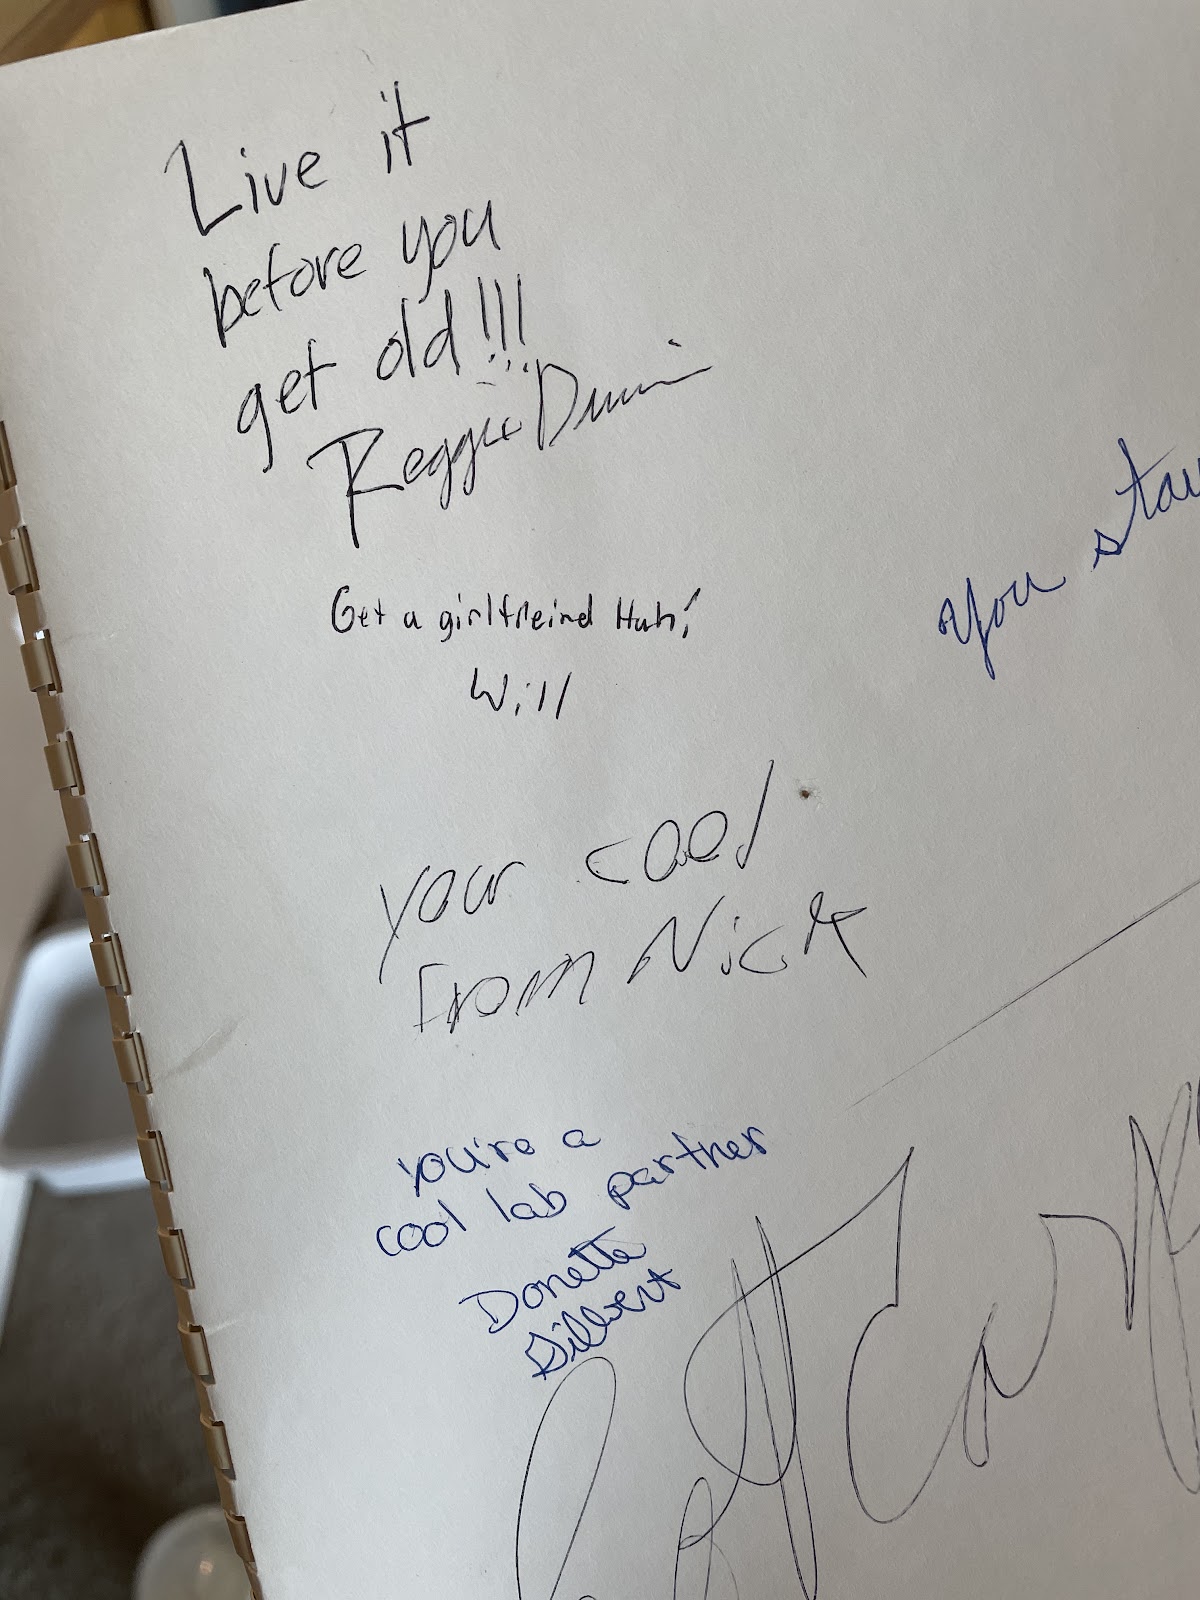 Live it
before you
get old!!!
Reggie
Get a girlfreind Huh!
Will
your cool
From Nick
you're a
cool lab partner
Donette
Gilbert
you stay